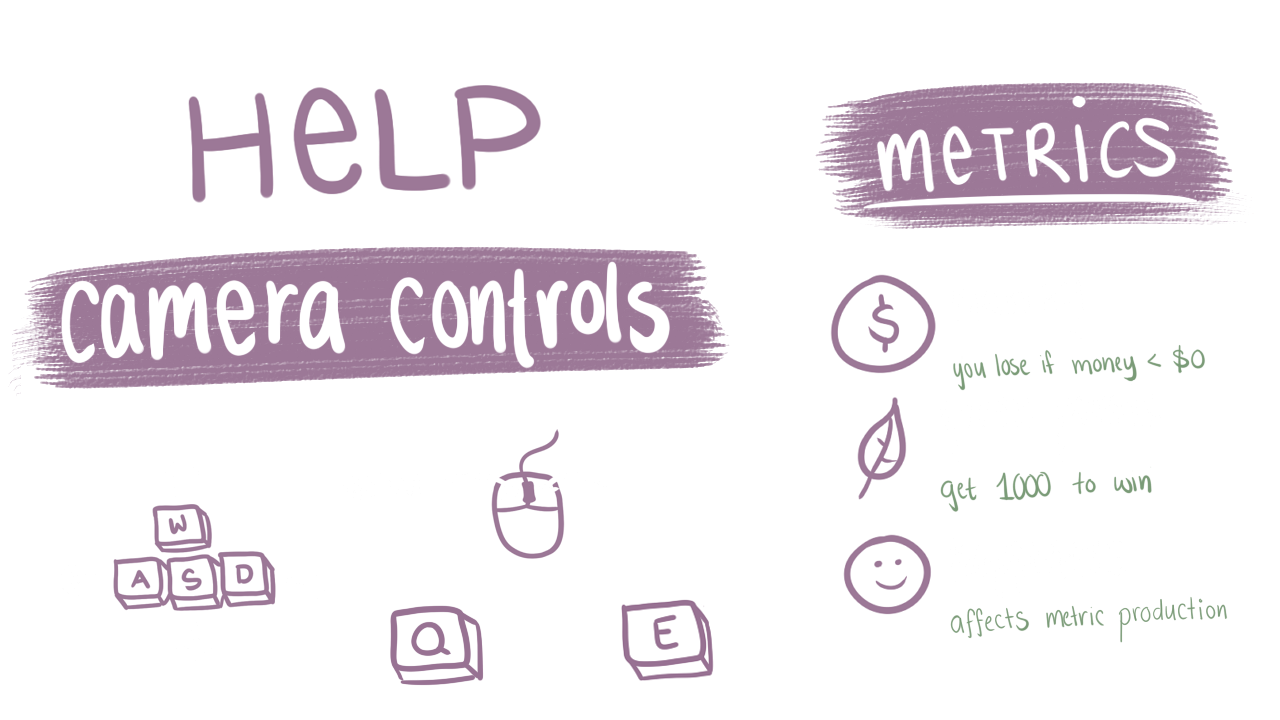 HeLP
camera controls
W
A S D
Q E
meTRiCS
$
you lose if money < $0
get 1000 to win
affects metric production